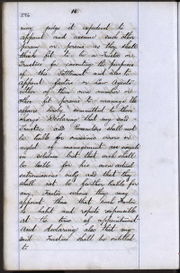 may judge it expedient to
appoint and assume such other
person or persons as they shall
think fit to be a Trustee or
Trustees for executing the purposes
of this Settlement and also to
appoint factors or law agents
either of their own number or
other fit persons to manage the
affairs hereby committed to their
charge Declaring that my said
Trustees and Executors shall not
be liable for omissions errors or
neglect of management nor singuli
in solidum but that each shall
be liable for his own actual
intromissions only and that they
shall not be further liable for
any factor whom they may
appoint than that such Factor
is habit and repute responsible
at the time of appointment
And declaring also that my
said Trustees shall be entitled
to